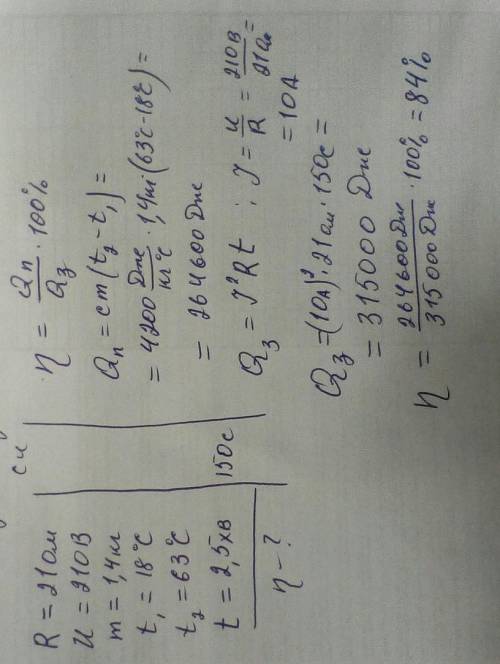 R = 21 Ом
U = 210 В
m = 1,4 кг
t₁ = 18°C
t₂ = 63°C
t = 2,5 хв
η - ?
си
150 с
η = Qп/Qз · 100%
Qп = cm(t₂ - t₁) =
= 4200 Дж/кг°C · 1,4 кг · (63°C - 18°C) =
= 264600 Дж
Qз = I²Rt ; I = U/R = 210 В/21 Ом =
= 10 А
Qз = (10 А)² · 21 Ом · 150 с =
= 315000 Дж
η = 264600 Дж/315000 Дж · 100% = 84%